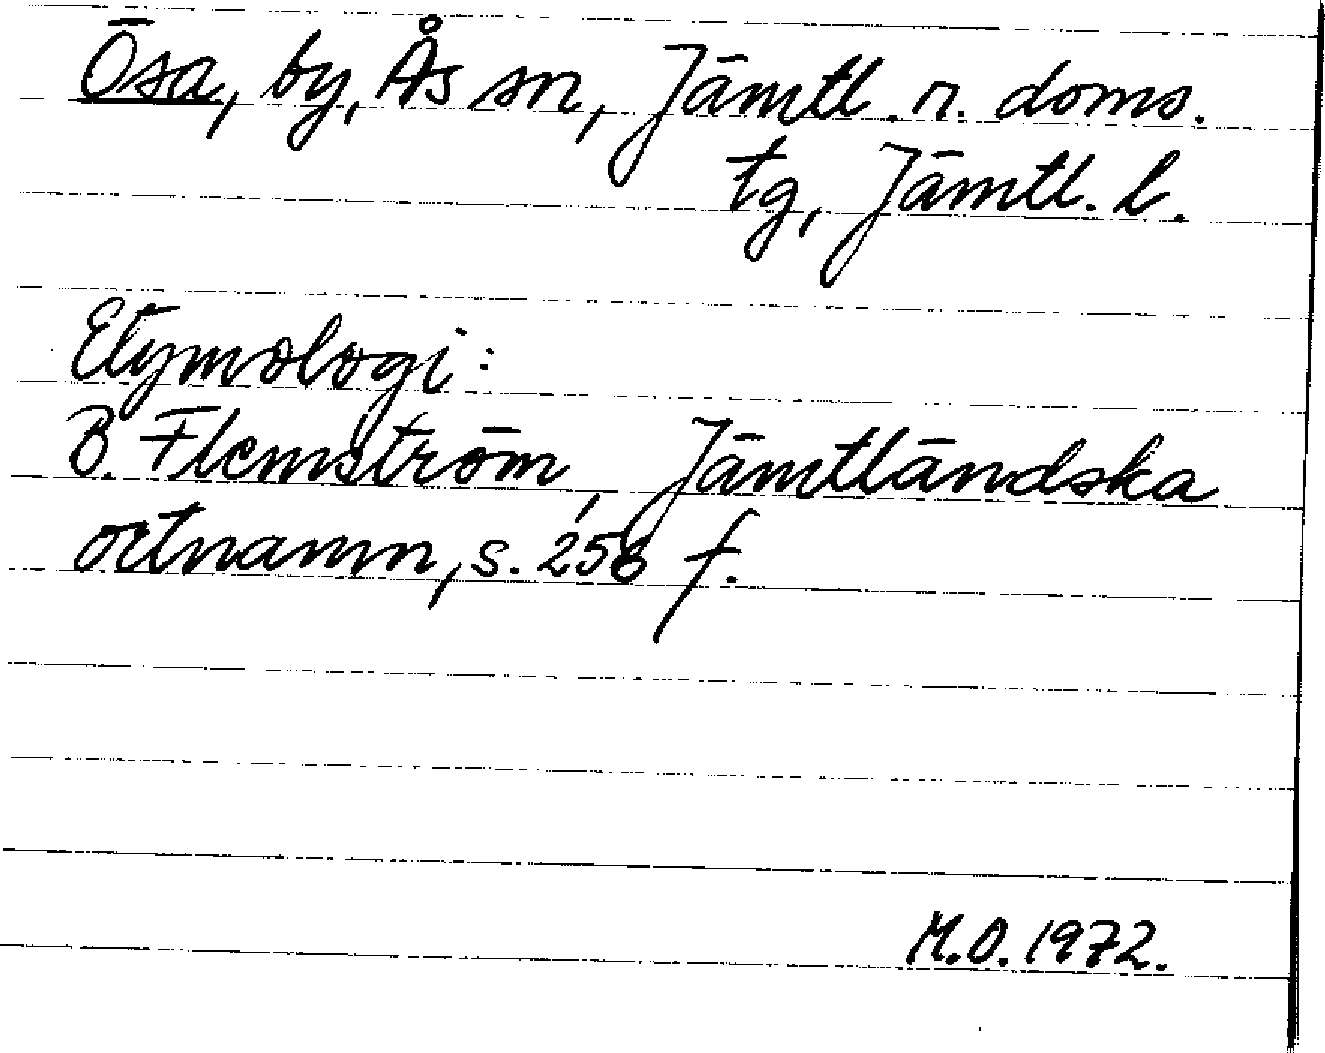 Ösa, by, Ås sn, Jämtl. n. doms.
tg, Jämtl. l.
Etymologi:
B. Flemström, Jämtländska
ortnamn, s. 256 f.
M.O. 1972.